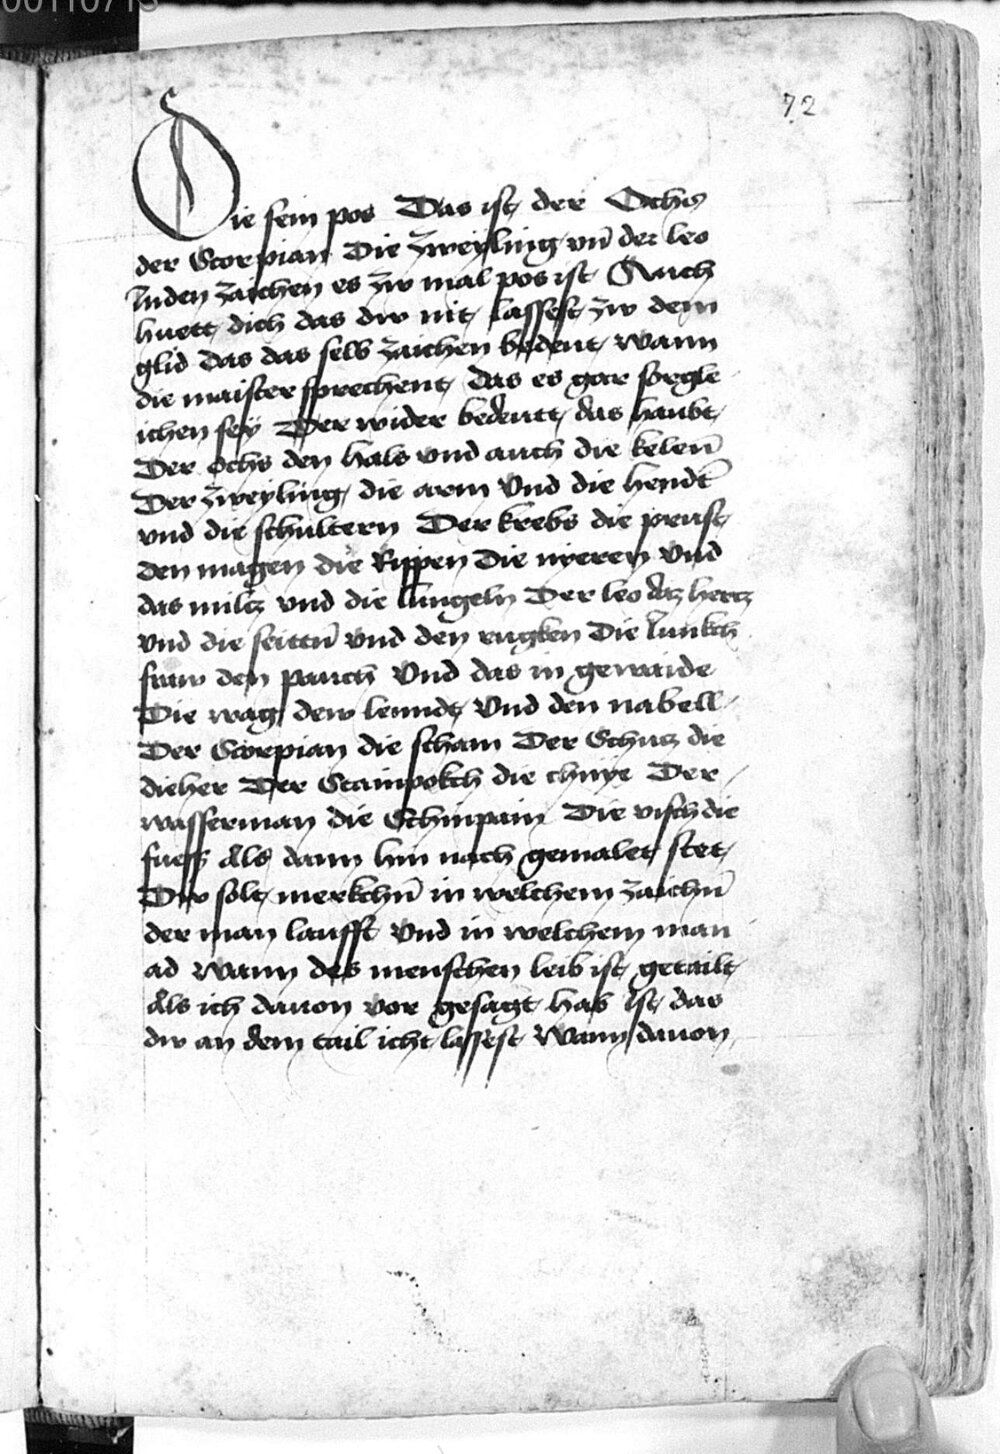 00110713
72
Die sein pos Das ist der Ochs
der Scorpian Die zweyling vn̄ der leo
Inden zaichen es zw mal pos ist Auch
huett dich das dw nit lassest zw dem
glid Das das selb zaichen bedeut wann
die maister sprechent das es gar sorgle
ichen sey Der wider bedeutt das haubt
Der ochs den hals vnd auch die kelen̄
Der zweyling die arm Vnd die hendt
vnd die schultern Der krebs die prust
den magen die Rippen Die nyeren Vnd
das miltz vnd die lungeln Der leo daz hertz
vnd die seittn̄ vnd den rugken Die Iunkch
fraw den pauch Vnd das in gewaide
Die wag dew lenndt Vnd den nabell
Der Scorpian die scham Der Schutz die
dieher Der Stainpokch die chnye Der
wasserman die Schinpain Die visch die
fuess Als dann hin nach gemalet stet
Dw solt merkchn̄ in welchem zaichn̄
der man laufft Vnd in welchem man
ad Wann des menschen leib ist getailt
Als ich dauon vor gesagt hab Ist das
dw an dem tail icht lassest Wann dauon